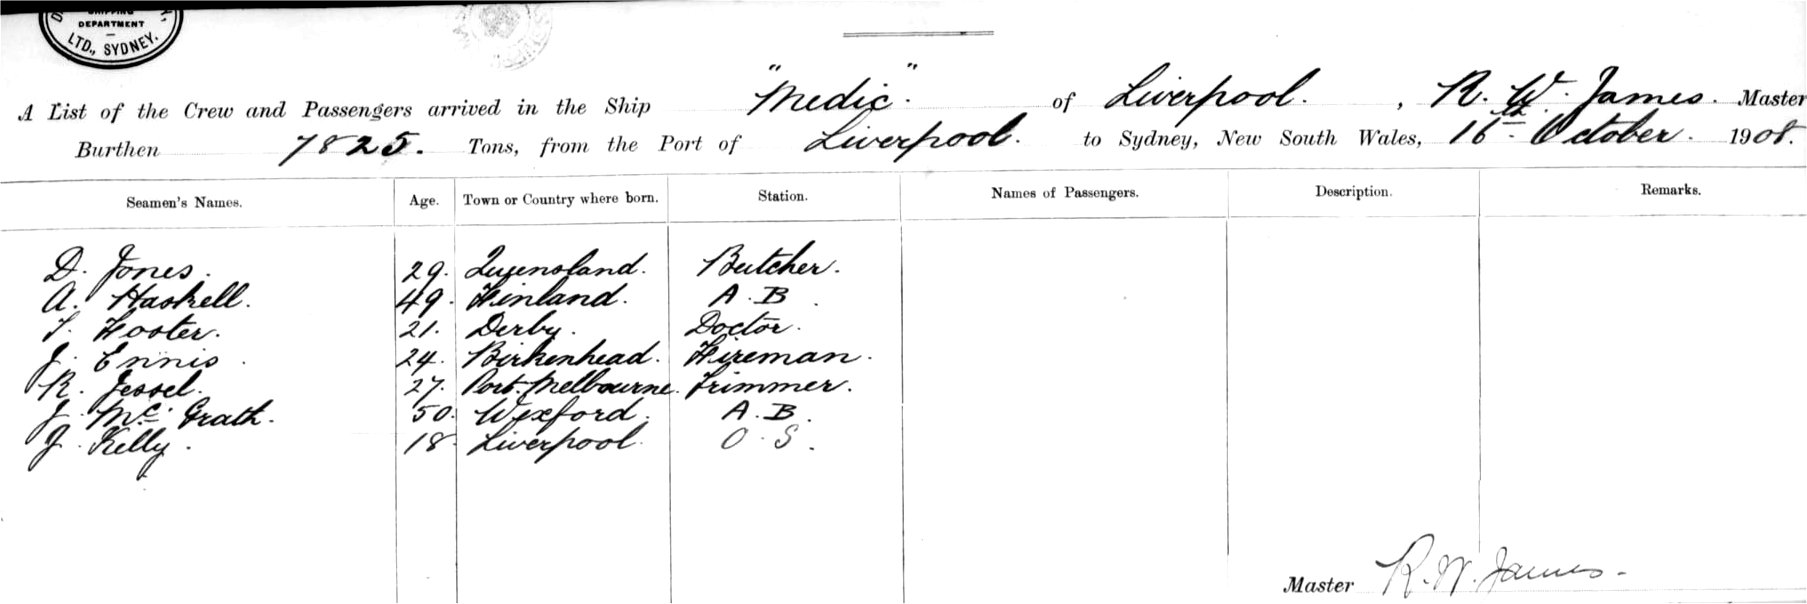 SHIPPING
DEPARTMENT
LTD., SYDNEY.
A List of the Crew and Passengers arrived in the Ship "Medic". of Liverpool. , R. W. James. Master
Burthen 7825. Tons, from the Port of Liverpool. to Sydney, New South Wales, 16th October. 1908.
Seamen's Names. Age. Town or Country where born. Station. Names of Passengers. Description. Remarks.
D. Jones. 29. Queensland. Butcher.
A. Haskell. 49. Finland. A.B.
T. Foster. 21. Derby. Doctor.
J. Ennis. 24. Birkenhead. Fireman.
R. Jessel. 27. Port Melbourne. Trimmer.
J. McGrath. 50. Wexford. A.B.
J. Kelly. 18. Liverpool. O.S.
Master R. W. James.